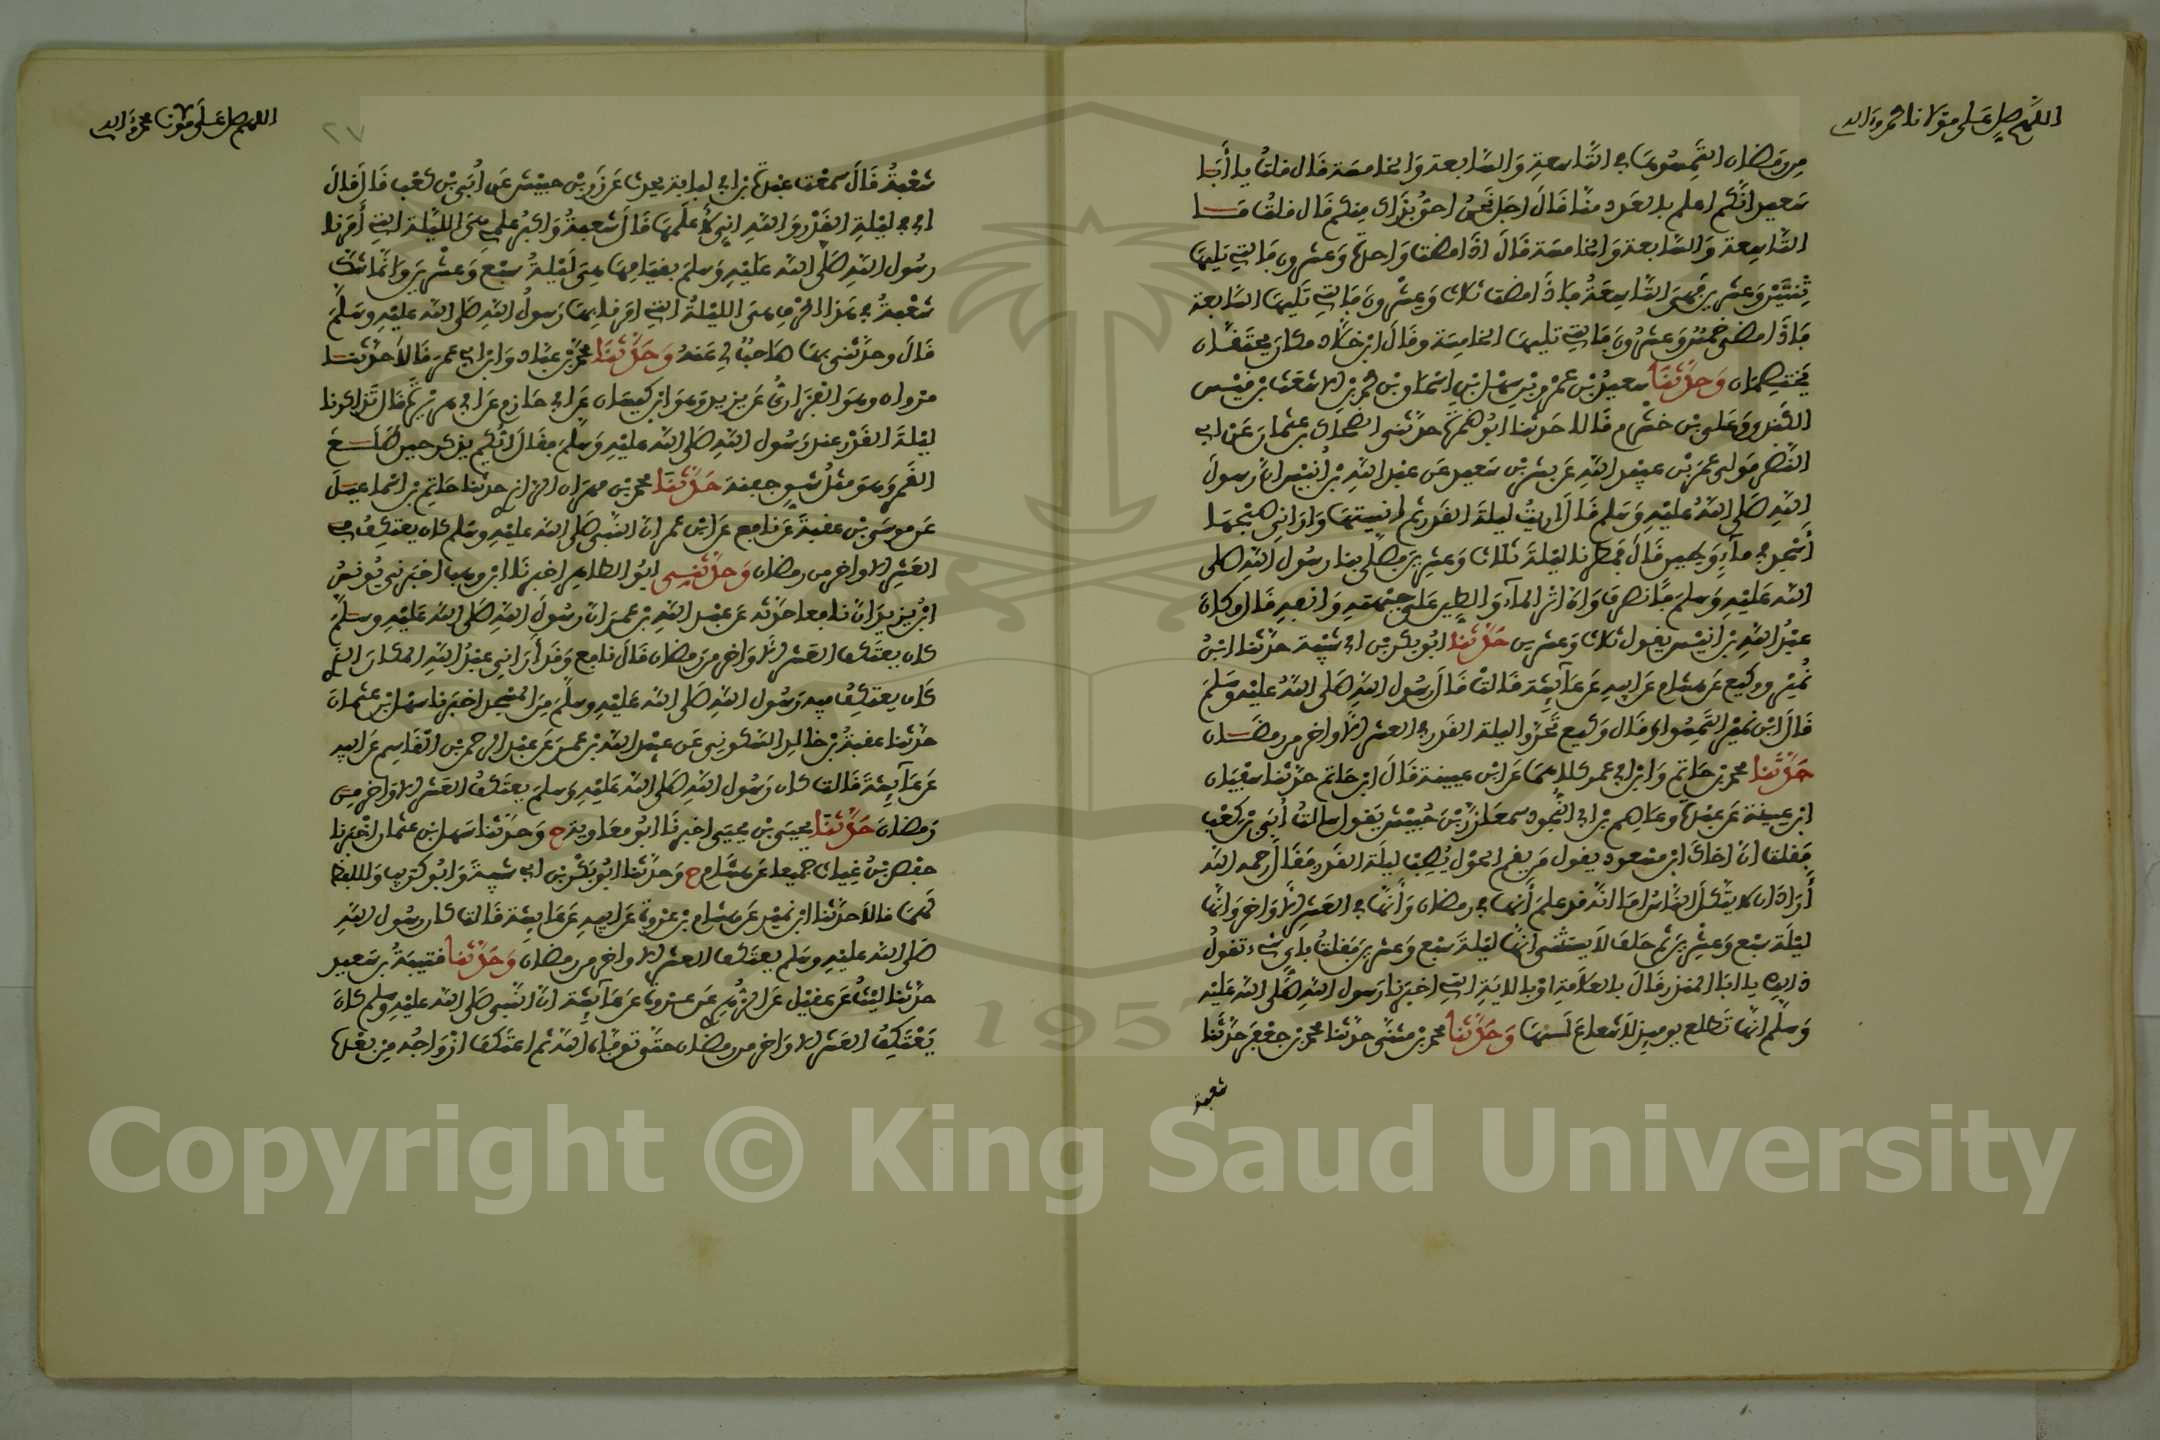 اللهم صل على مولانا محمد وءاله
من رمضان التمسوها في التاسعة والسابعة والخامسة قال قلت يا أبا
سعيد انكم اعلم بالعدد منا قال اجل نحن احق بذاك منكم قال قلت ما
التاسعة والسابعة والخامسة قال اذا مضت واحدة وعشرون فالتي تليها
ثنتين وعشرين فهي التاسعة فاذا مضت ثلاث وعشرون فالتي تليها السابعة
فاذا مضى خمس وعشرون فالتي تليها الخامسة وقال ابن خلاد مكان يحتقان
يختصمان وحدثنا سعيد بن عمرو بن سهل بن اسحاق بن محمد بن الاشعث بن قيس
الكندي وعلي بن خشرم قالا حدثنا ابو ضمرة حدثني الضحاك بن عثمان عن ابي
النضر مولى عمر بن عبيد الله عن بسر بن سعيد عن عبد الله بن أنيس ان رسول
الله صلى الله عليه وسلم قال أريت ليلة القدر ثم انسيتها واراني صبحها
أسجد في ماء وطين قال فمطرنا ليلة ثلاث وعشرين فصلى بنا رسول الله صلى
الله عليه وسلم فانصرف وان اثر الماء والطين على جبهته وانفه قال وكان
عبد الله بن انيس يقول ثلاث وعشرين حدثنا ابو بكر بن ابي شيبة حدثنا ابن
نمير ووكيع عن هشام عن ابيه عن عآئشة قالت قال رسول الله صلى الله عليه وسلم
قال ابن نمير التمسوا وقال وكيع تحروا ليلة القدر في العشر الاواخر من رمضان
حدثنا محمد بن حاتم وابن ابي عمر كلاهما عن ابن عيينة قال ابن حاتم حدثنا سفيان
ابن عيينة عن عبدة وعاصم بن ابي النجود سمعا زر بن حبيش يقول سالت أبي بن كعب
فقلت ان اخاك ابن مسعود يقول من يقم الحول يصب ليلة القدر فقال رحمه الله
أراد ان لا يتكل الناس اما انه قد علم أنها في رمضان وأنها في العشر الاواخر وانها
ليلة سبع وعشرين ثم حلف لا يستثنى انها ليلة سبع وعشرين فقلت باي شيء تقول
ذالك يا ابا المنذر قال بالعلامة او بالاية التي اخبرنا رسول الله صلى الله عليه
وسلم انها تطلع يوميذ لا شعاع لها وحدثنا محمد بن مثنى حدثنا محمد بن جعفر حدثنا
شعبة
اللهم صل على مولانا محمد وءاله
٢٧
شعبة قال سمعت عبدة بن ابي لبابة يحدث عن زر بن حبيش عن أبي بن كعب قال قال
ابي في ليلة القدر والله اني لأعلمها قال شعبة واكبر علمي هي الليلة التي أمرنا
رسول الله صلى الله عليه وسلم بقيامها هي ليلة سبع وعشرين وانما شك
شعبة في هذا الحرف هي الليلة التي امرنا بها رسول الله صلى الله عليه وسلم
قال وحدثني بها صاحب لي عنه وحدثنا محمد بن عباد وابن ابي عمر قالا حدثنا
مروان وهو الفزاري عن يزيد وهو ابن كيسان عن ابي حازم عن ابي هريرة قال تذاكرنا
ليلة القدر عند رسول الله صلى الله عليه وسلم فقال ايكم يذكر حين طلع
القمر وهو مثل شق جفنة حدثنا محمد بن مهران الرازي حدثنا حاتم بن اسماعيل
عن موسى بن عقبة عن نافع عن ابن عمر ان النبي صلى الله عليه وسلم كان يعتكف في
العشر الاواخر من رمضان وحدثني ابو الطاهر اخبرنا ابن وهب اخبرني يونس
ابن يزيد ان نافعا حدثه عن عبد الله بن عمر ان رسول الله صلى الله عليه وسلم
كان يعتكف العشر الاواخر من رمضان قال نافع وقد أراني عبد الله المكان الذي
كان يعتكف فيه رسول الله صلى الله عليه وسلم من المسجد اخبرنا سهل بن عثمان
حدثنا عقبة بن خالد السكوني عن عبيد الله بن عمر عن عبد الرحمن بن القاسم عن ابيه
عن عآئشة قالت كان رسول الله صلى الله عليه وسلم يعتكف العشر الاواخر من
رمضان حدثنا يحيى بن يحيى اخبرنا ابو معاوية ح وحدثنا سهل بن عثمان اخبرنا
حفص بن غياث جميعا عن هشام ح وحدثنا ابو بكر بن ابي شيبة وابو كريب واللفظ
لهما قالا حدثنا ابن نمير عن هشام بن عروة عن ابيه عن عايشة قالت كان رسول الله
صلى الله عليه وسلم يعتكف العشر الاواخر من رمضان وحدثنا قتيبة بن سعيد
حدثنا ليث عن عقيل عن الزهري عن عروة عن عآئشة ان النبي صلى الله عليه وسلم كان
يعتكف العشر الاواخر من رمضان حتى توفاه الله ثم اعتكف ازواجه من بعده
Copyright © King Saud University
1957